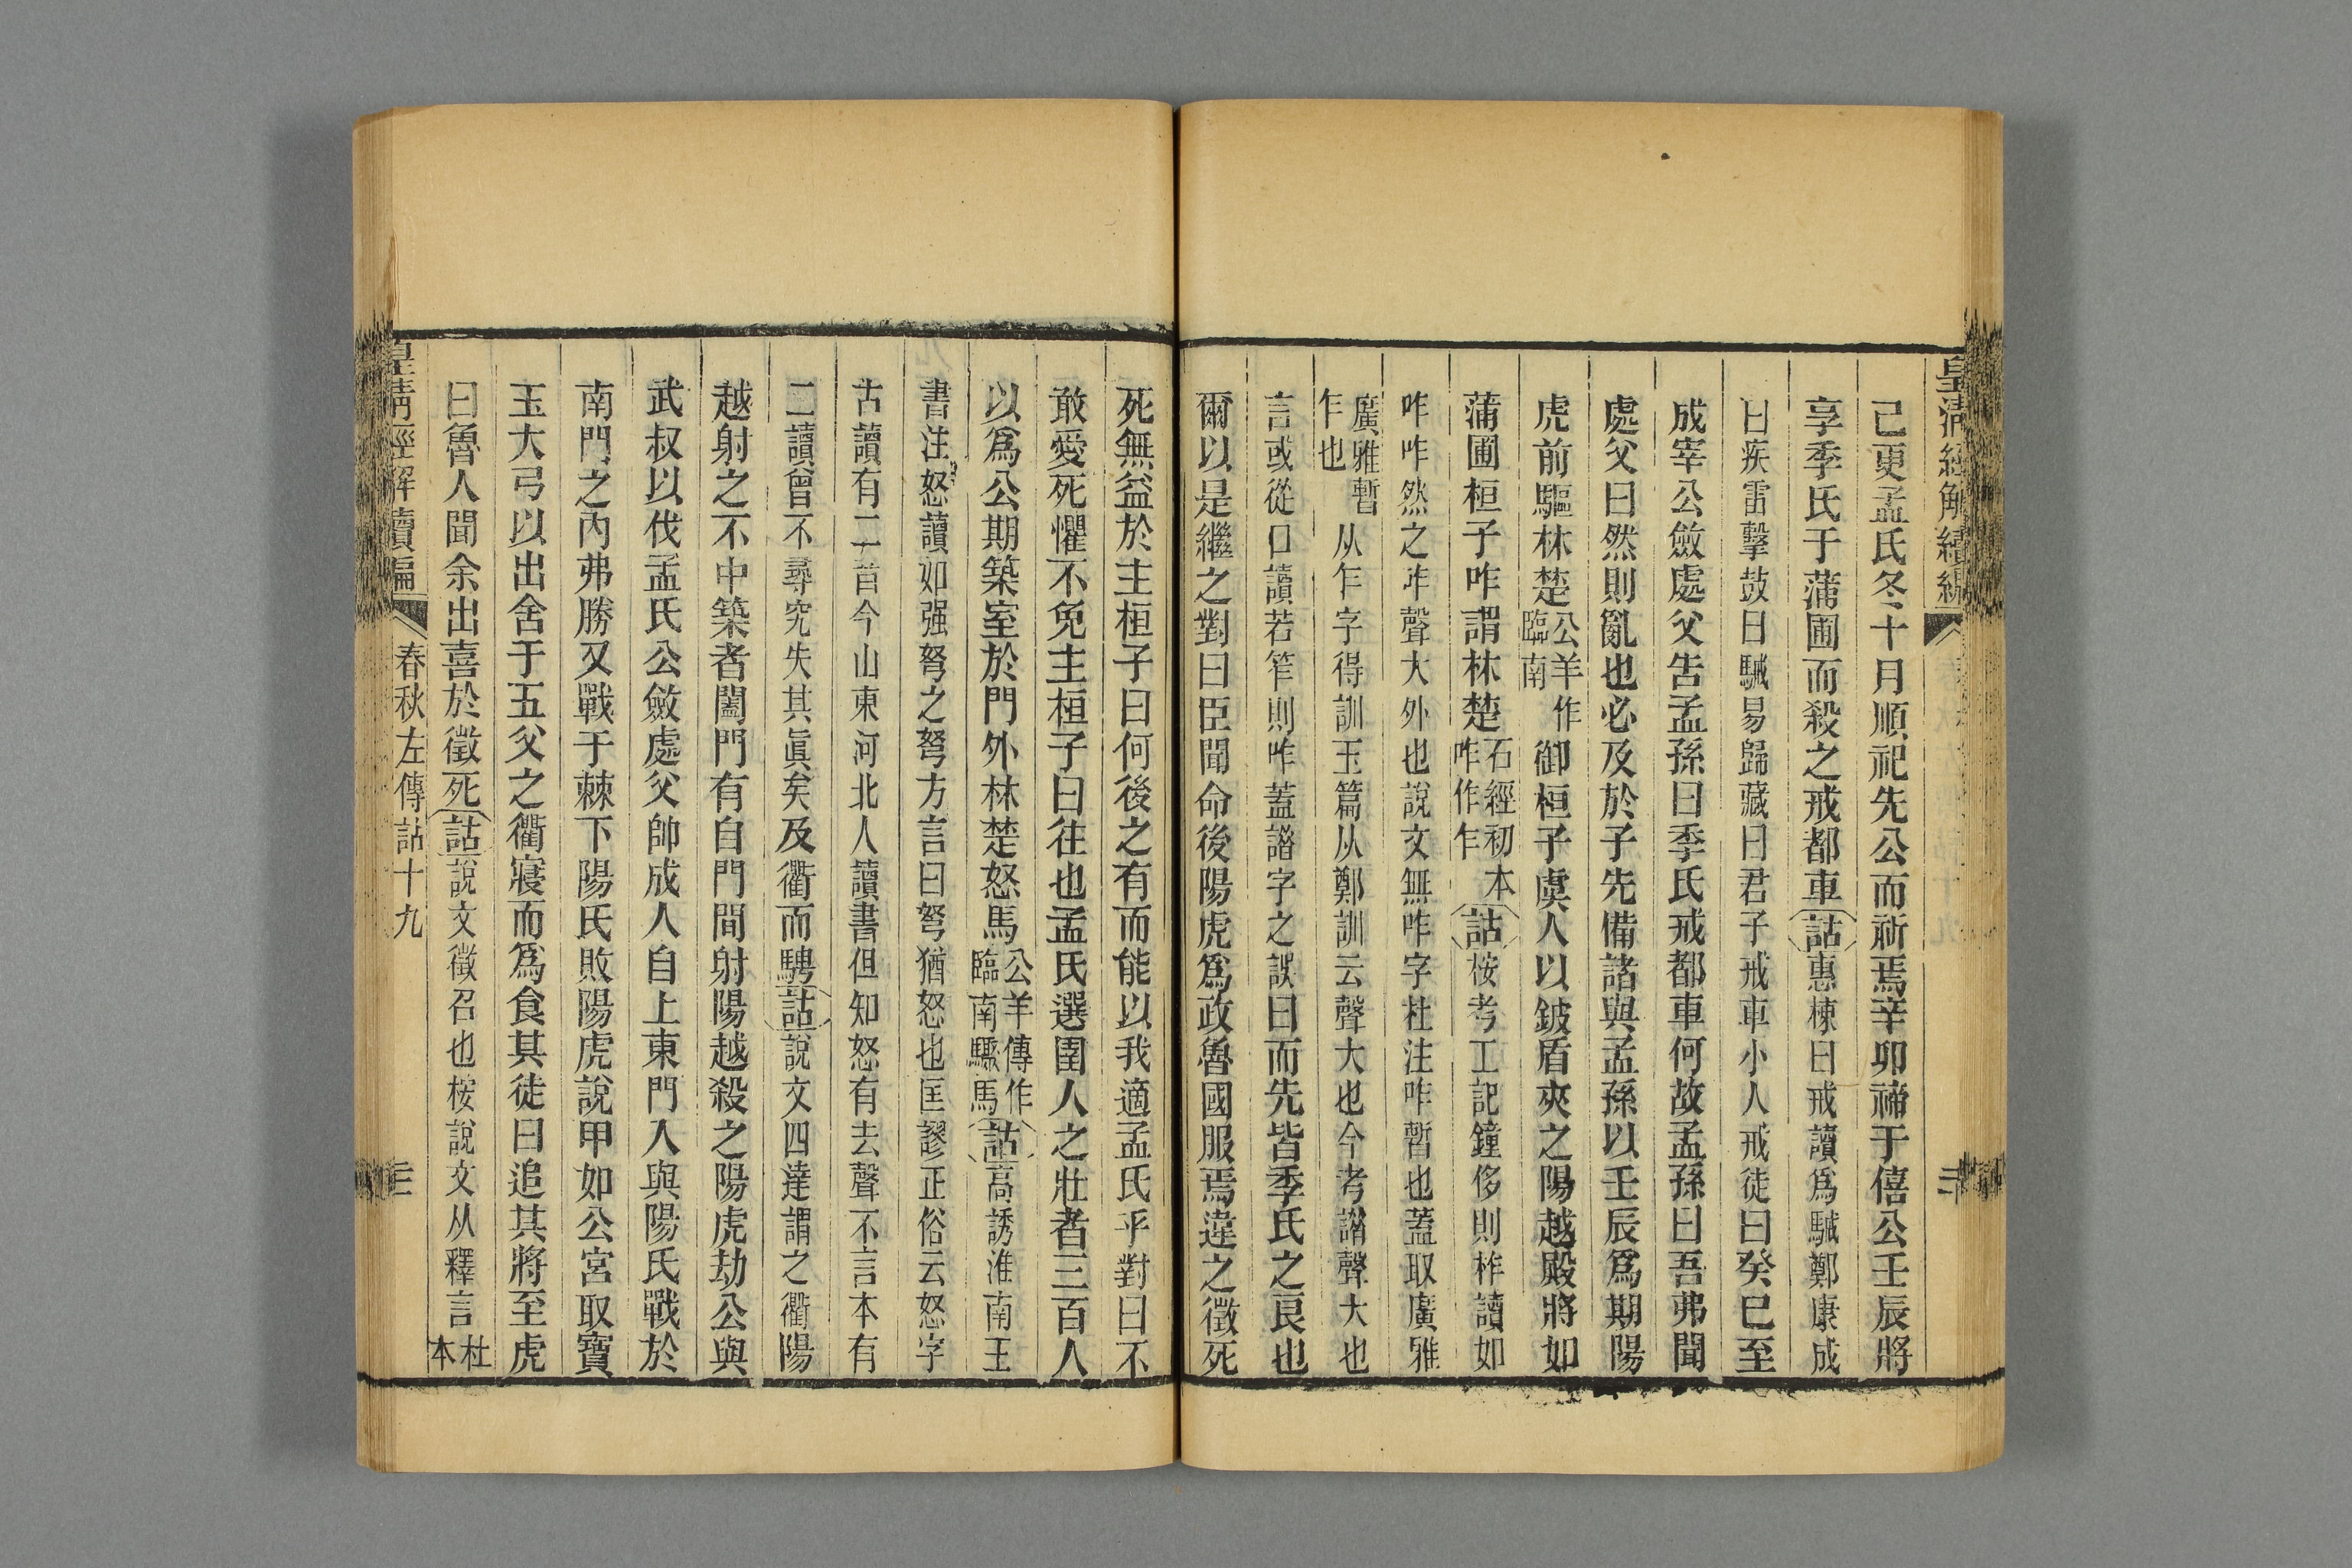 皇清經解續編
己更孟氏冬十月順祀先公而祈焉辛卯禘于僖公壬辰將
享季氏于蒲圃而殺之戒都車詁惠棟曰戒讀爲駴鄭康成
曰疾雷擊鼓曰駴易歸藏曰君子戒車小人戒徒曰癸巳至
成宰公斂處父告孟孫曰季氏戒都車何故孟孫曰吾弗聞
處父曰然則亂也必及於子先備諸與孟孫以壬辰爲期陽
虎前驅林楚公羊作臨南御桓子虞人以鈹盾夾之陽越殿將如
蒲圃桓子咋謂林楚石經初本咋作乍詁桉考工記鐘侈則柞讀如
咋咋然之咋聲大外也說文無咋字杜注咋暫也蓋取廣雅
廣雅暫乍也从乍字得訓玉篇从鄭訓云聲大也今考譜聲大也
言或從口讀若笮則咋蓋譜字之誤曰而先皆季氏之良也
爾以是繼之對曰臣聞命後陽虎爲政魯國服焉違之徵死
死無益於主桓子曰何後之有而能以我適孟氏乎對曰不
敢愛死懼不免主桓子曰往也孟氏選圉人之壯者三百人
以爲公期築室於門外林楚怒馬公羊傳作臨南驟馬詁高誘淮南王
書注怒讀如强弩之弩方言曰弩猶怒也匡謬正俗云怒字
古讀有二音今山東河北人讀書但知怒有去聲不言本有
二讀曾不尋究失其眞矣及衢而騁詁說文四達謂之衢陽
越射之不中築者闔門有自門間射陽越殺之陽虎劫公與
武叔以伐孟氏公斂處父帥成人自上東門入與陽氏戰於
南門之內弗勝又戰于棘下陽氏敗陽虎說甲如公宮取寶
玉大弓以出舍于五父之衢寢而爲食其徒曰追其將至虎
曰魯人聞余出喜於徵死詁說文徵召也桉說文从釋言杜本
皇清經解續編　春秋左傳詁十九